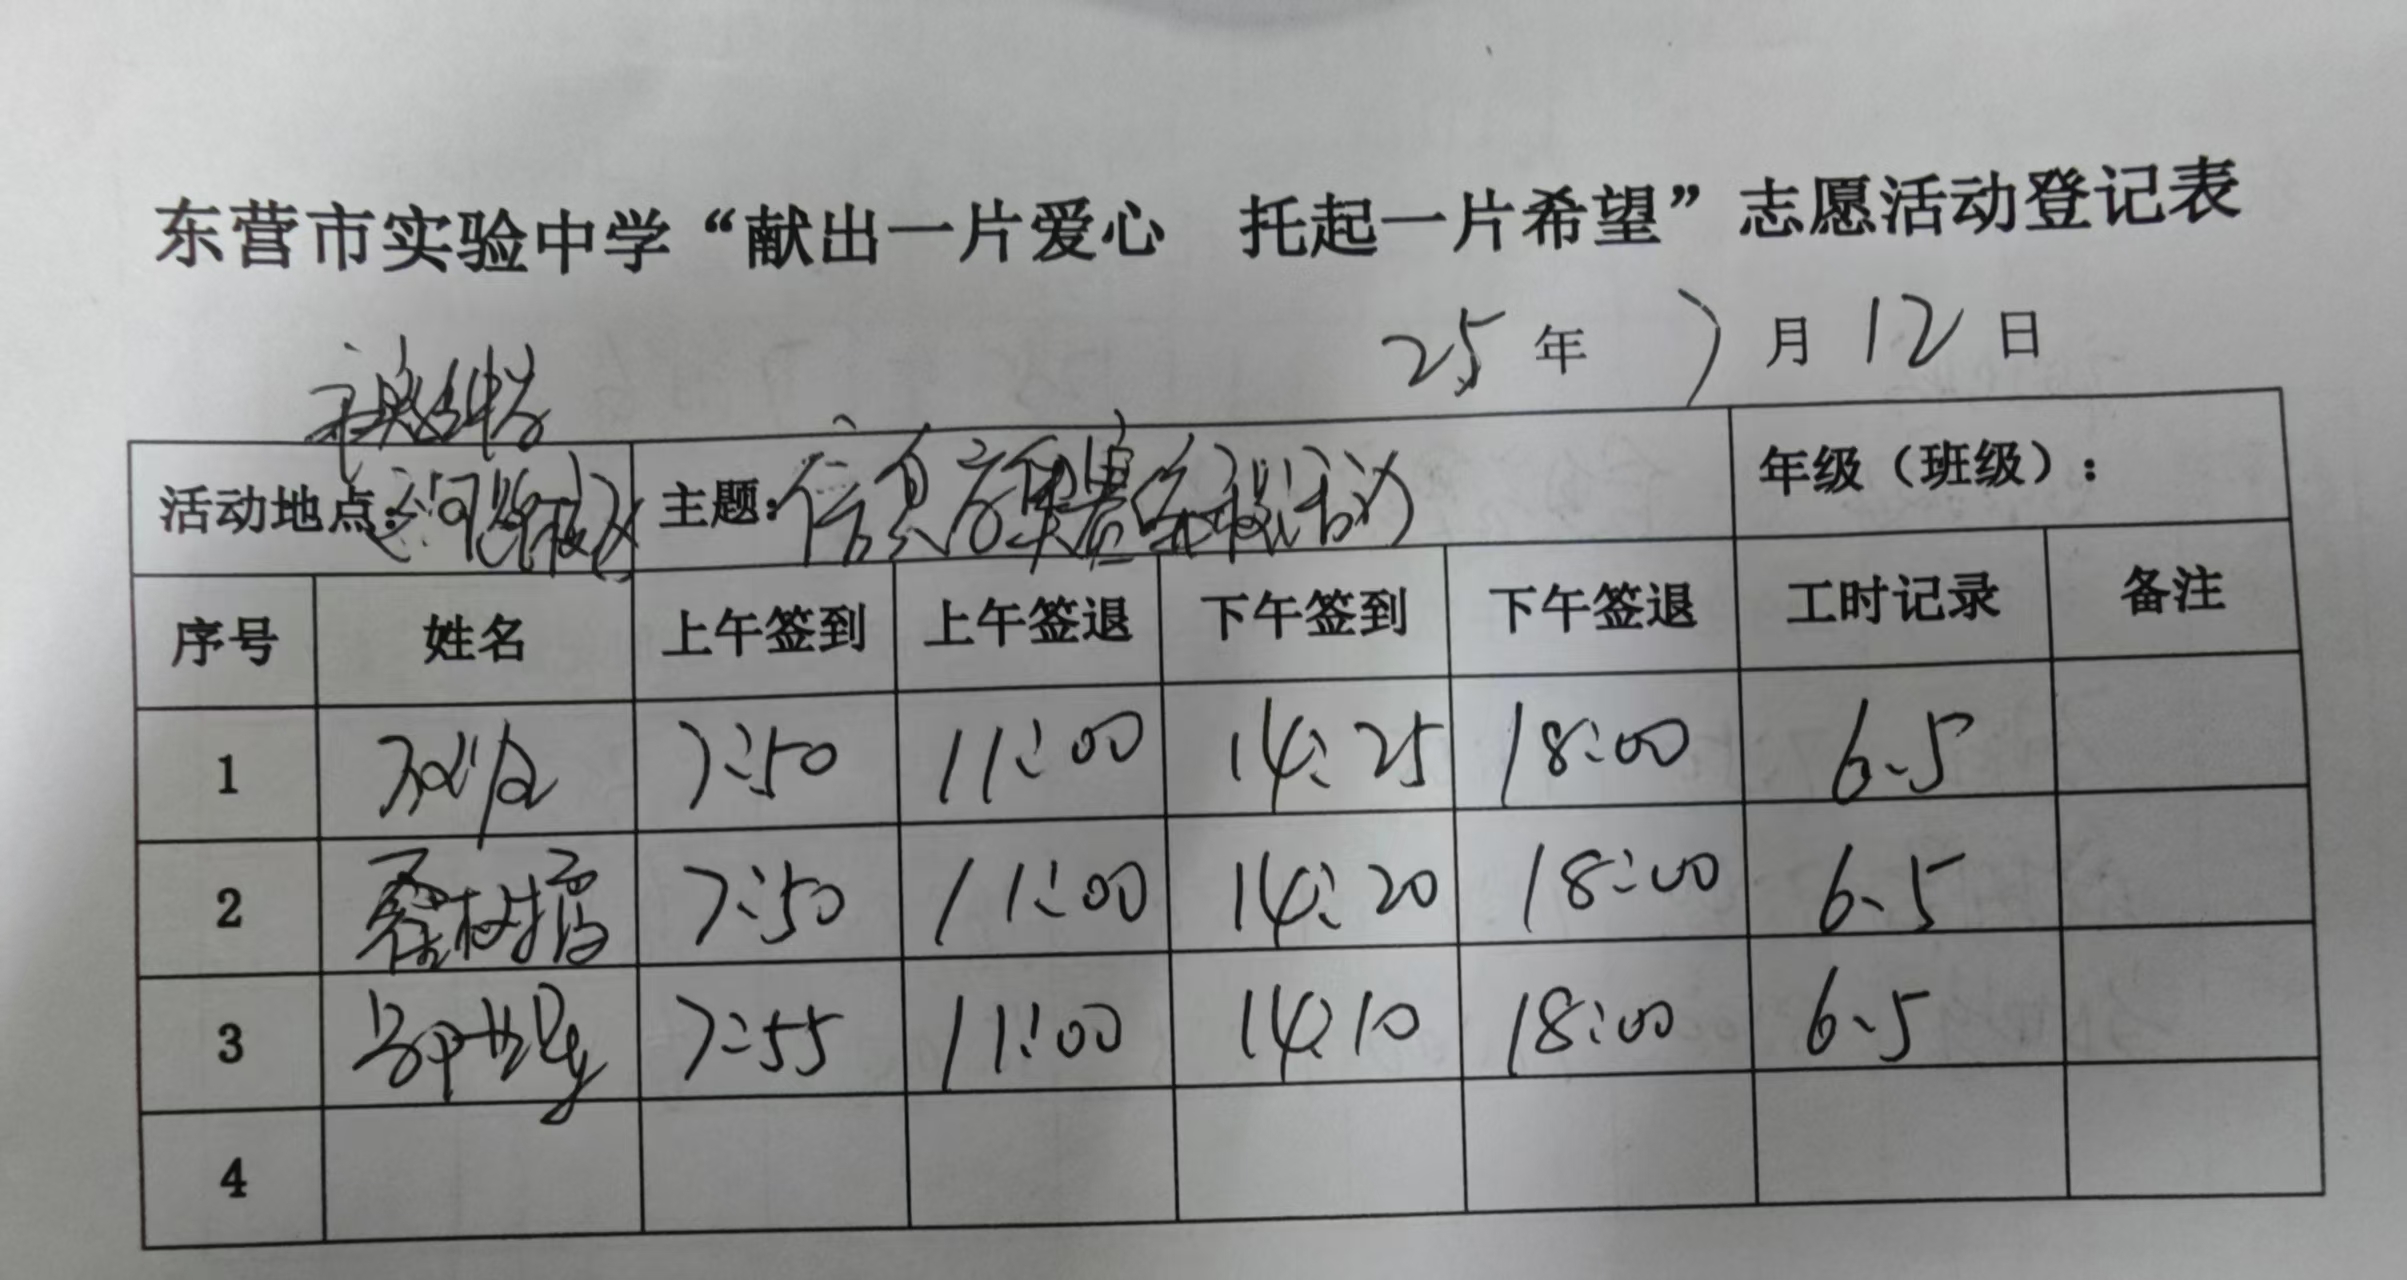 东营市实验中学“献出一片爱心 托起一片希望”志愿活动登记表
25年 7月12日
活动地点: 主题: 活动 年级（班级）:
序号 姓名 上午签到 上午签退 下午签到 下午签退 工时记录 备注
1 7:50 11:00 14:25 18:00 6.5
2 7:50 11:00 14:20 18:00 6.5
3 7:55 11:00 14:10 18:00 6.5
4